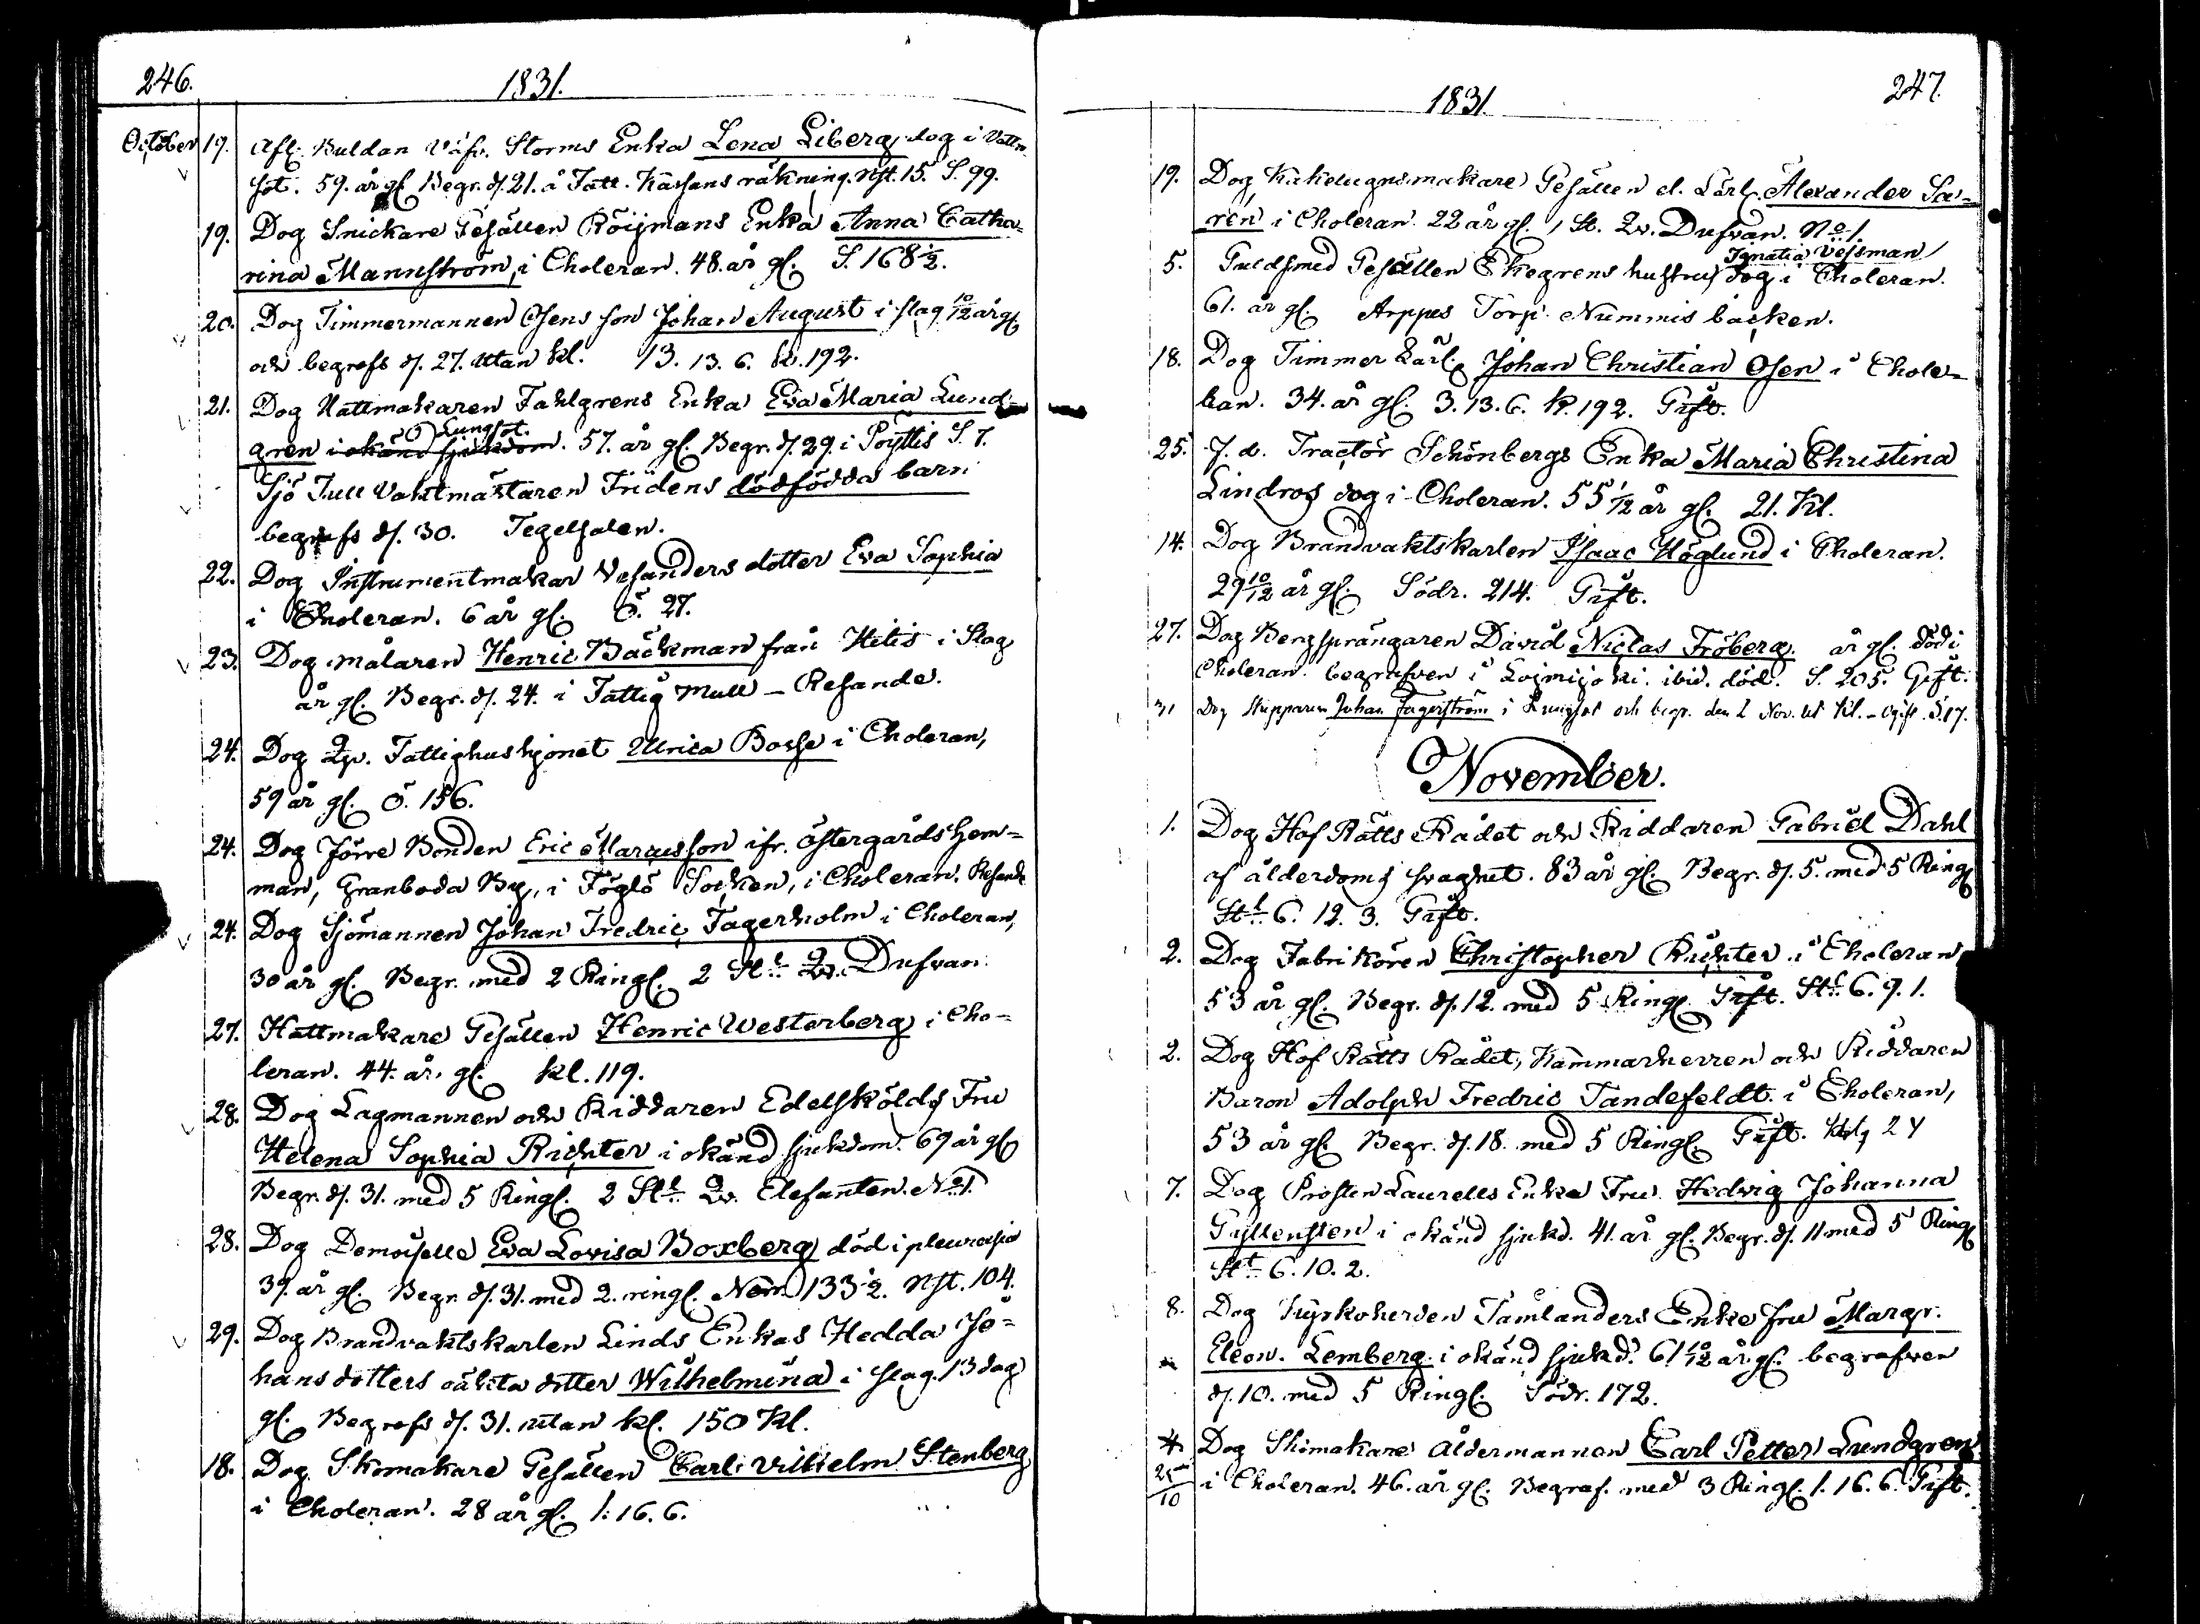 246.
1831.
October 19. Afl. Buldan Väfv. Storms Enka Lena Liberg dog i Vattn
sot. 59. år gl. Begr. d. 21. å Fatt. Kassans räkning. Nst. 15. S. 99.
19. Dog Snickare Gesällen Röijmans Enka Anna Catha=
rina Mannström, i Choleran. 48. år gl. S. 168½.
20. Dog Timmermannen Osens son Johan August i slag 10/12 år gl
och begrofs d. 27. utan kl. 13. 13. 6. kl. 192.
21. Dog Hattmakaren Fahlgrens Enka Eva Maria Lund=
gren i okänd sjukdom Lungsot. 57. år gl. Begr. d. 29. i Pöyttis S. 7.
Sjö Tull Vaktmästaren Fridens dödfödda barn
begrofs d. 30. Tegelsalen.
22. Dog Instrumentmakar Vesanders dotter Eva Sophia
i Choleran. 6 år gl. Ö. 27.
23. Dog målaren Henric Backman från Hitis i Slag
år gl. Begr. d. 24. i Fattig Mull - Resande.
24. Dog Qv. Fattighushjonet Ulrica Bosse i Choleran,
59 år gl. Ö. 156.
24. Dog Förre Bonden Eric Marcusson ifr. Östergårds Hem=
man, Granboda By, i Föglö Socken, i Choleran. Resande
24. Dog Sjömannen Johan Fredric Fagerholm i Choleran,
30 år gl. Begr. med 2 Ringl. 2 St. Qv. Dufvan.
27. Hattmakare Gesällen Henric Westerberg i Cho=
leran. 44. år. gl. kl. 119.
28. Dog Lagmannen och Riddaren Edelskölds Fru
Helena Sophia Richter i okänd sjukdom. 69 år gl
Begr. d. 31. med 5 Ringl. 2 St. Qv. Elefanten. No 1.
28. Dog Demoiselle Eva Lovisa Boxberg död i pleuresie
39. år gl. Begr. d. 31. med 2. ringl. Norr. 133½. Nst. 104.
29. Dog Brandvaktskarlen Linds Enkas Hedda Jo=
hansdotters oäkta dotter Wilhelmina i slag. 13 dag
gl. Begrofs d. 31. utan kl. 150 Kl.
18. Dog Skomakare Gesällen Carl Vilhelm Stenberg
i Choleran. 28 år gl. 1. 16. 6.
1831.
247.
19. Dog Kakelugnsmakare Gesällen el. Lärl. Alexander Sa=
ren i Choleran. 22 år gl. 1 St. Qv. Dufvan. No 1.
5. Guldsmed Gesällen Ekegrens hustru Ignatia Veisman dog i Choleran.
61. år gl. Arppes Torp. Nummis backen.
18. Dog Timmer Karl Johan Christian Osen i Chole=
ran. 34. år gl. 3. 13. 6. kl. 192. Gift.
25. F. d. Tractör Schönbergs Enka Maria Christina
Lindros dog i Choleran. 55 1/12 år gl. 21. Kl.
14. Dog Brandvaktskarlen Isaac Höglund i Choleran.
29 10/12 år gl. Södr. 214. Gift.
27. Dog Bergsprängaren David Niclas Fröberg. år gl. död i
Choleran. begrafven i Loimijoki. ibid. död. S. 205. Gift.
31 Dog Skepparen Johan Fagerström i Lungsot och begr. den 2 Nov. ut. Kl. - Ogift. S. 17.
November.
1. Dog Hof Rätts Rådet och Riddaren Gabriel Dahl
af ålderdoms svaghet. 83 år gl. Begr. d. 5. med 5 Ringl
St. 6. 12. 3. Gift.
2. Dog Fabrikören Christopher Richter i Choleran
53 år gl. Begr. d. 12. med 5 Ringl. Gift. St. 6. 9. 1.
2. Dog Hof Rätts Rådet, Kammarherren och Riddaren
Baron Adolph Fredric Tandefeldt i Choleran,
53 år gl. Begr. d. 18. med 5 Ringl. Gift. 24
7. Dog Prosten Laurells Enka Fru Hedvig Johanna
Gyllensten i okänd sjukd. 41. år gl. Begr. d. 11 med 5 Ringl
St. 6. 10. 2.
8. Dog Kyrkoherden Tamlanders Enke fru Margr.
Eleon. Lemberg i okänd sjukd. 61 10/12 år gl. begrafven
d. 10. med 5 Ringl. Södr. 172.
Dog Skomakare Åldermannen Carl Petter Lundgren
25/10 i Choleran. 46. år gl. Begraf. med 3 Ringl. 1. 16. 6. Gift.